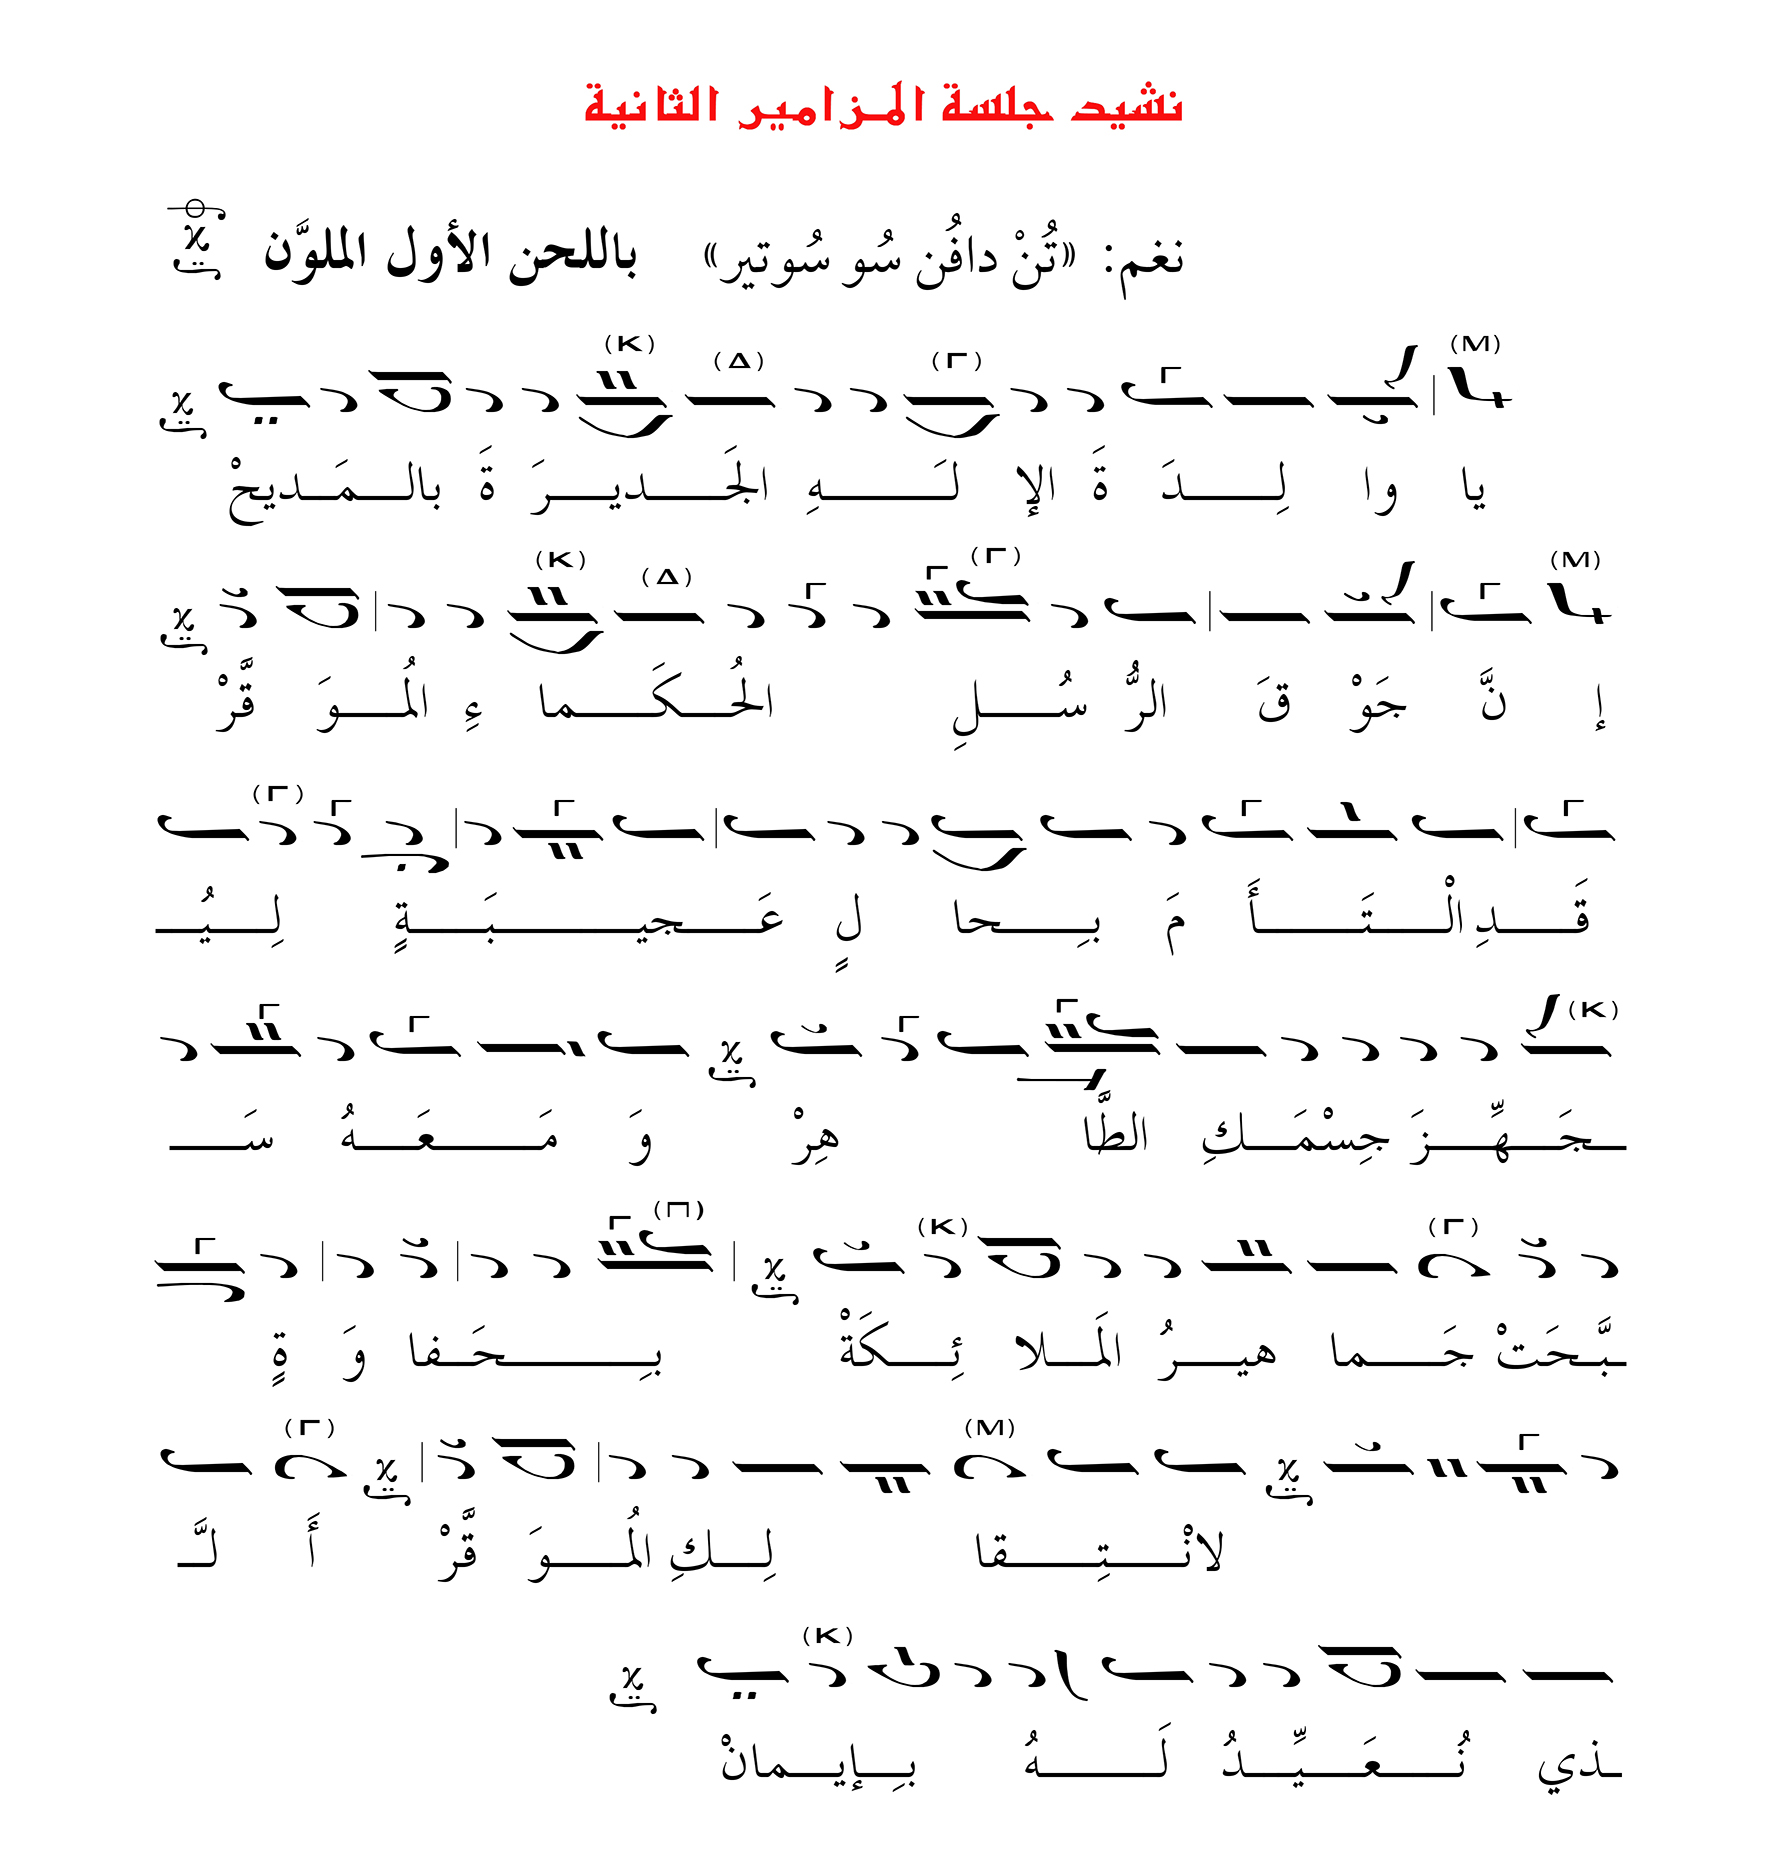 نشيد جلسة المزامير الثانية
نغم: «تُنْ دافُن سُو سُوتير» باللحن الأول الملوَّن
(M) (Γ) (Δ) (K)
يا وا لِـــدَ ةَ الإ لَـــهِ الجَـــديـــرَ ةَ بالـــمَـــديحْ
(M) (Γ) (Δ) (K)
إ نَّ جَوْ قَ الرُّ سُـــلِ الحُـــكَـــما ءِ المُـــوَ قَّرْ
(Γ)
قَـــدِ الْـــتَـــأَ مَ بِـــحا لٍ عَـــجيـــبَـــةٍ لِـــيُـــ
(K)
ـــجَـــهِّـــزَ جِسْمَـــكِ الطَّا هِرْ وَ مَـــعَـــهُ سَـــ
(Γ) (K) (Π)
ـبَّـحَتْ جَـــما هيـــرُ المَـــلا ئِـــكَةْ بِـــحَـــفا وَ ةٍ
(M) (Γ)
لانْـــتِـــقا لِـــكِ المُـــوَ قَّرْ أَ لَّـ
(K)
ـذي نُـــعَـــيِّـــدُ لَـــهُ بِـــإيـــمانْ